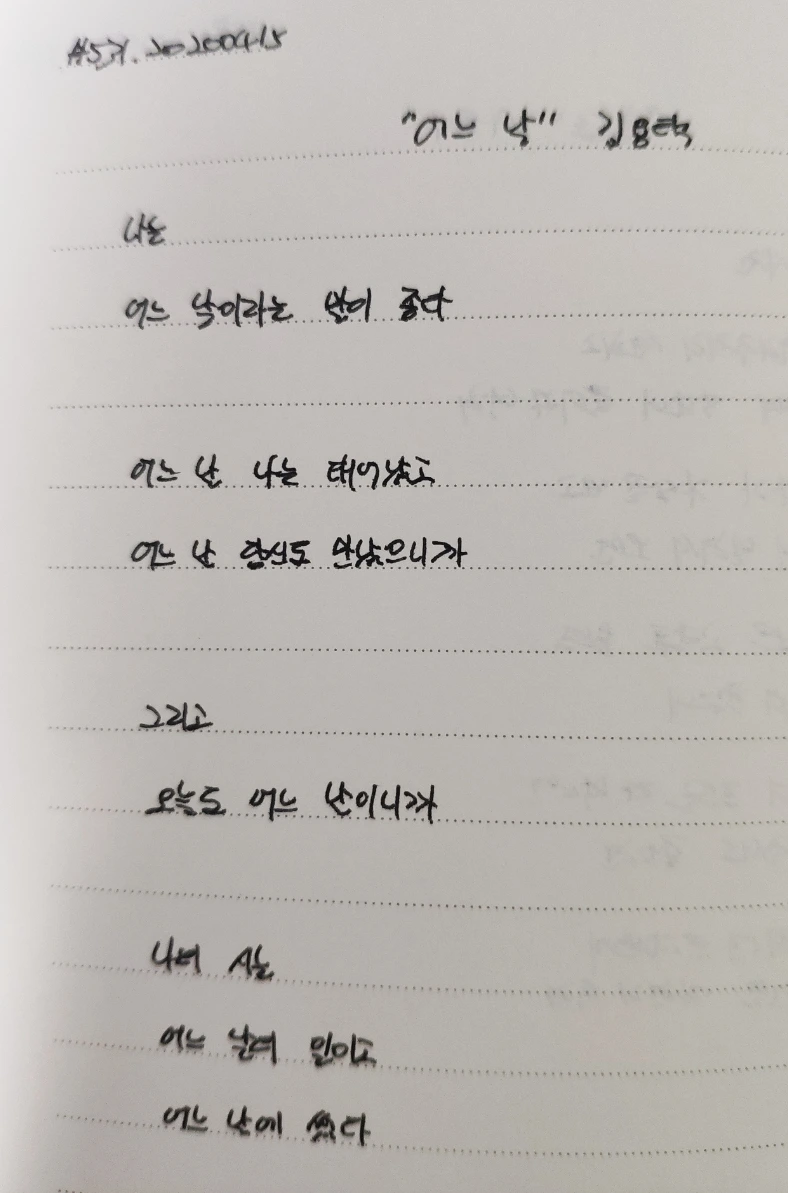 #53일. 20200415
"어느 날" 김용택
나는
어느 날이라는 말이 좋다
어느 날 나는 태어났고
어느 날 당신도 만났으니까
그리고
오늘도 어느 날이니까
나의 시는
어느 날의 일이고
어느 날에 썼다